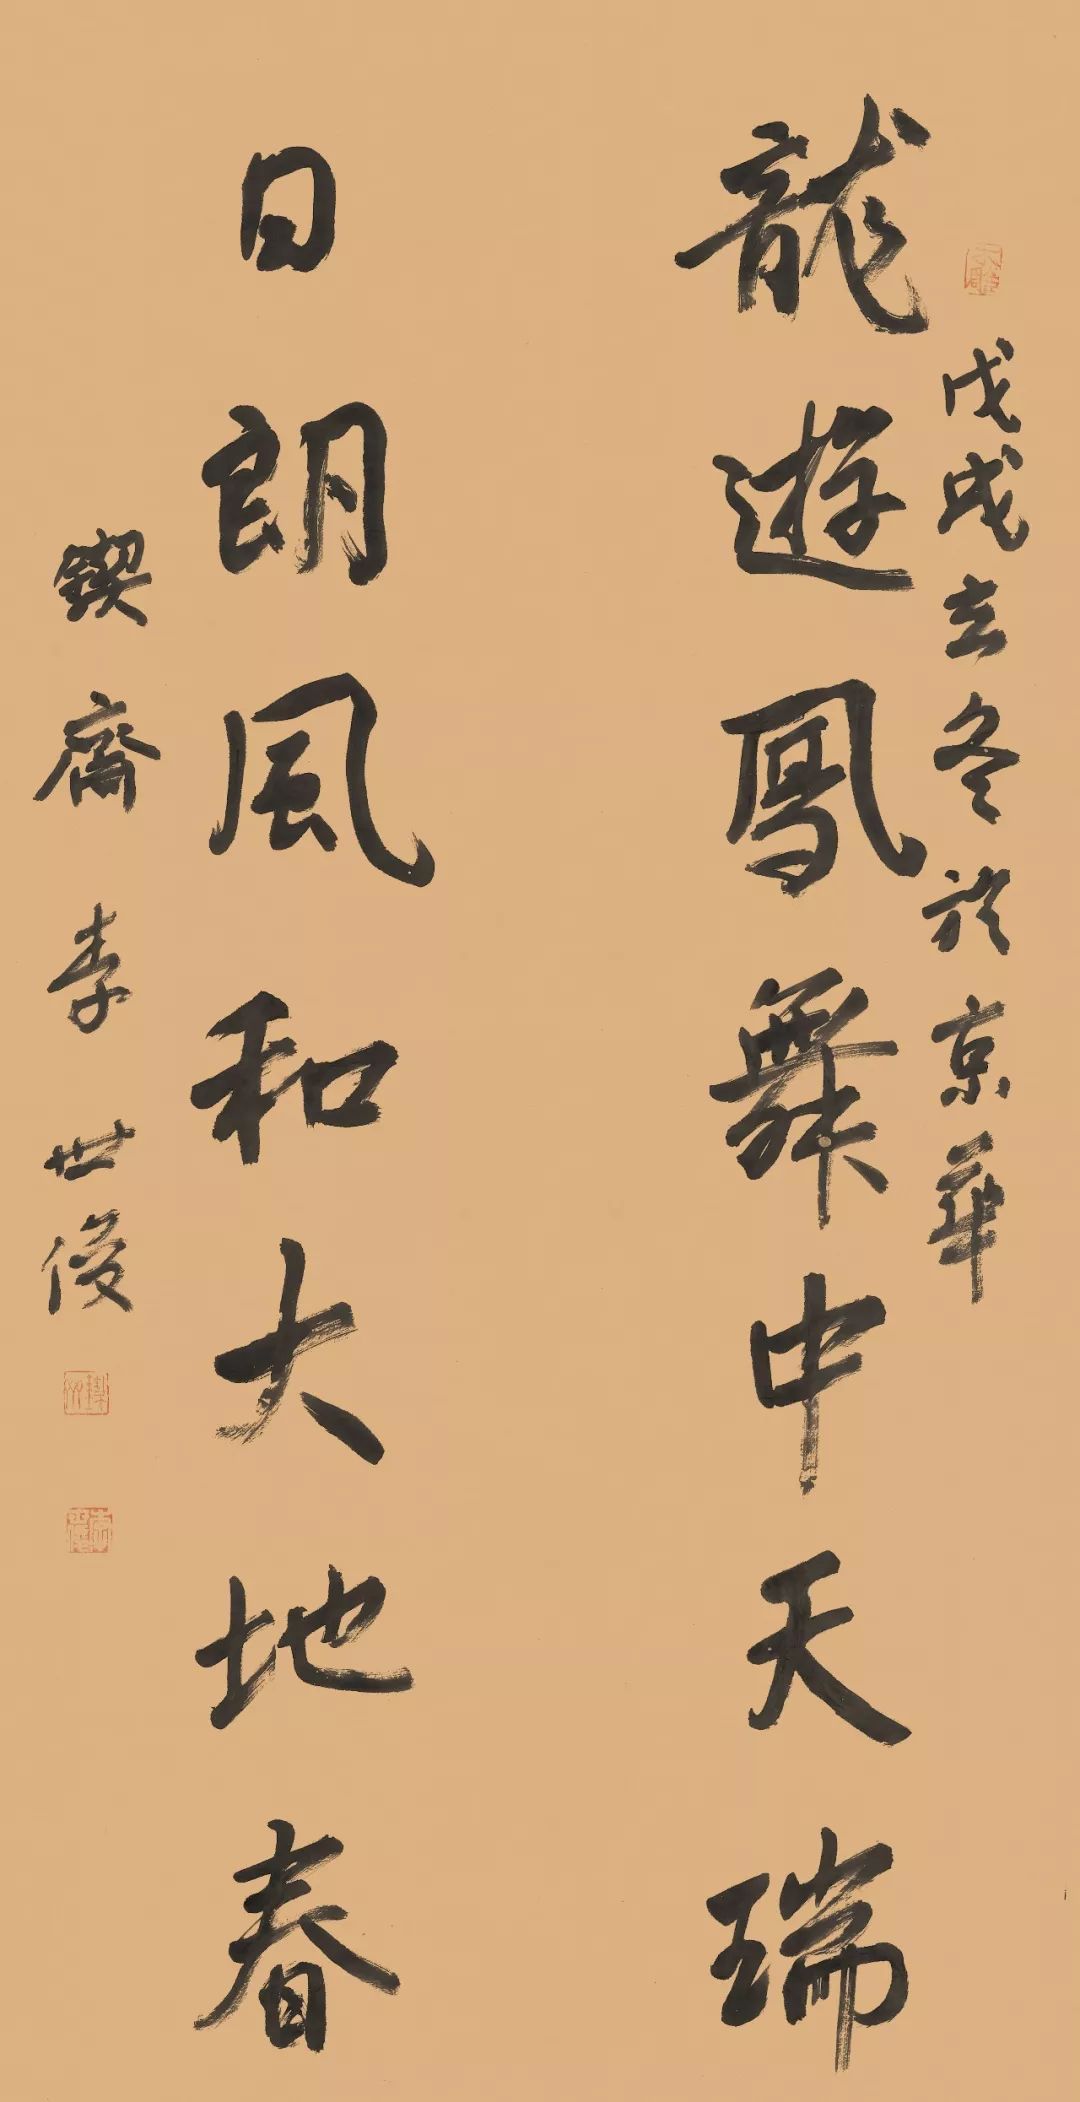 戊戌立冬於京華
龍遊鳳舞中天瑞
日朗風和大地春
鍥齋李世俊